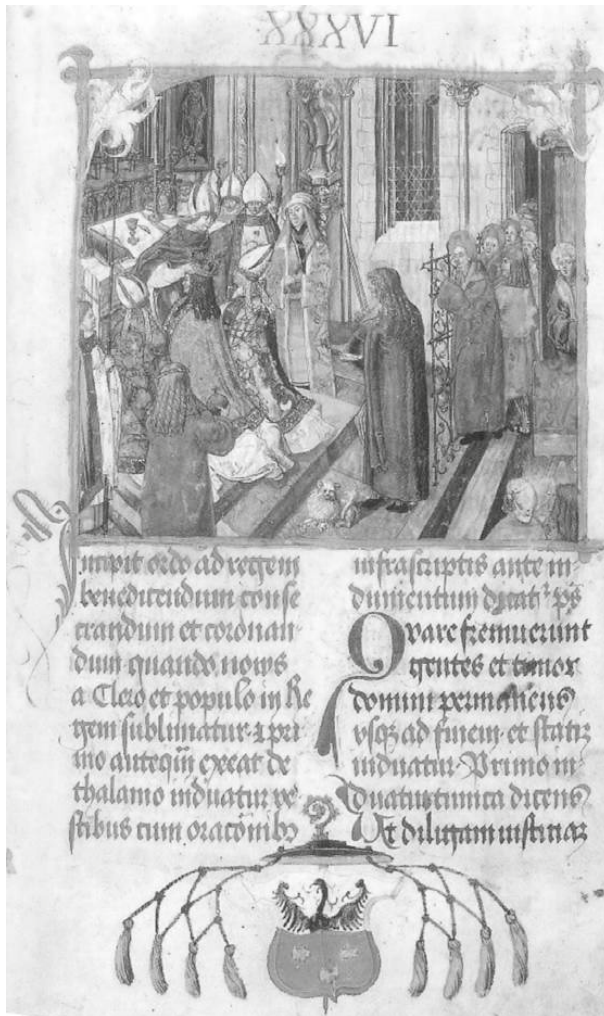 XXXVI
Incipit ordo ad regem
benedicendum conse
crandum et coronan-
dum quando novus
a Clero et populo in Re
gem sublimatur. et pri
mo anteqm exeat de
thalamo induatur ve
stibus cum oraconibz
infrascriptis ante in-
dumentum dicat ps
Quare fremuerunt
gentes et timor
domini permanens
vsqz ad finem. et statim
induatur. Primo in-
duatur tunica dicens
Et diligam iusticiaz